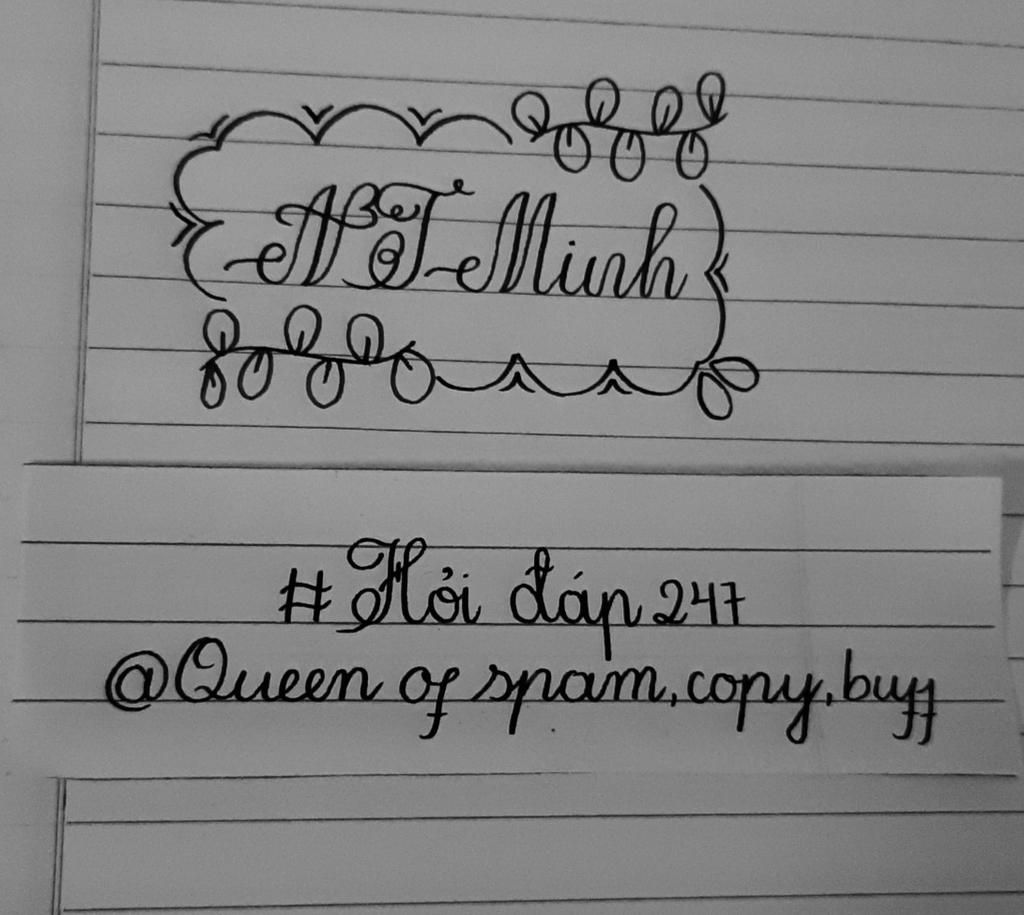 NT Minh
#Hỏi đáp 247
@Queen of spam,copy,buff